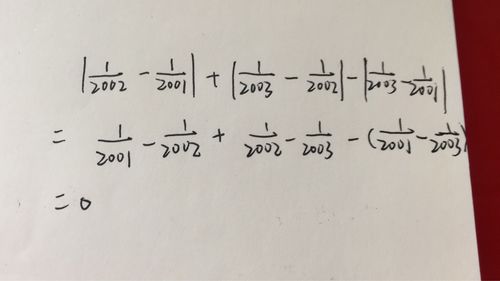 |1/2002 - 1/2001| + |1/2003 - 1/2002| - |1/2003 - 1/2001|
= 1/2001 - 1/2002 + 1/2002 - 1/2003 - (1/2001 - 1/2003)
= 0